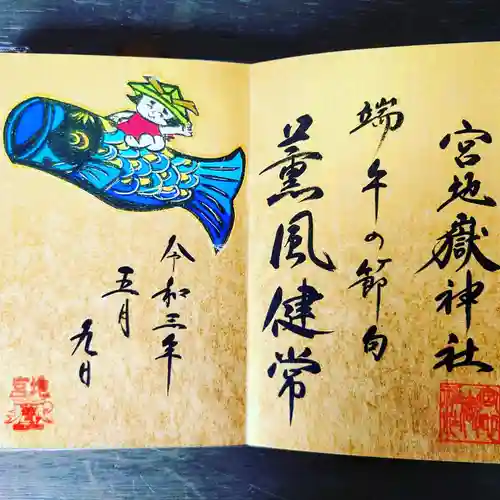 宮地嶽神社
端午の節句
薫風健常
令和三年
五月
九日
宮地